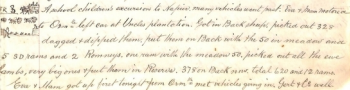 8 School children's excursion to Napier, many vehicles went past. Eva &
Orn 2 left ear at plantation. Got in Back sheep picked out 328
dagged & dipped them, put them on Back with the 50 in meadow and
5 30 rams and 2 Romneys, one ram with the mission 50, picked out all the ewe
lambs, very big ones & put them in Reserve. 378 on Back now, total 620 and 12 rams.
Eva & Mam got up first longs from Orn wet whistle going in, Got